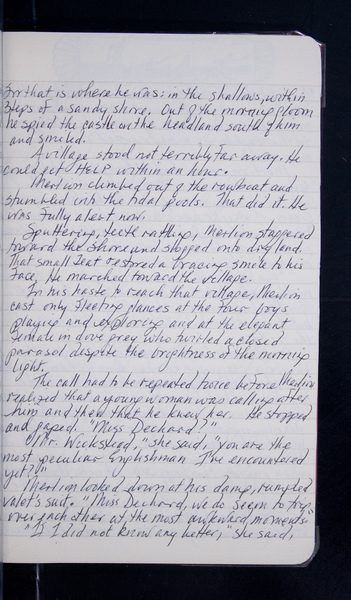 For that is where he was: in the shallows, within
steps of a sandy shore. Out of the morning gloom
he spied the castle on the headland south of him
and smiled.
A village stood not terribly far away. He
could get HELP within an hour.
Merlion climbed out of the rowboat and
stumbled into the tidal pools. That did it. He
was fully alert now.
Sputtering, teeth rattling, Merlion staggered
toward the shore and slopped onto dry land.
That small feat restored a bracing smile to his
face. He marched toward the village.
In his haste to reach that village, Merlion
cast only fleeting glances at the four boys
playing and exploring and at the elegant
female in dove grey who twirled a closed
parasol despite the brightness of the morning
light.
The call had to be repeated twice before Merlion
realized that a young woman was calling after
him and then that he knew her. He stopped
and gaped. "Miss Dechard?"
"Mr. Wickstead," she said, "you are the
most peculiar Englishman I've encountered
yet?"
Merlion looked down at his damp, rumpled
valet's suit. "Miss Dechard, we do seem to trip
over each other at the most awkward moments."
"If I did not know any better," she said,